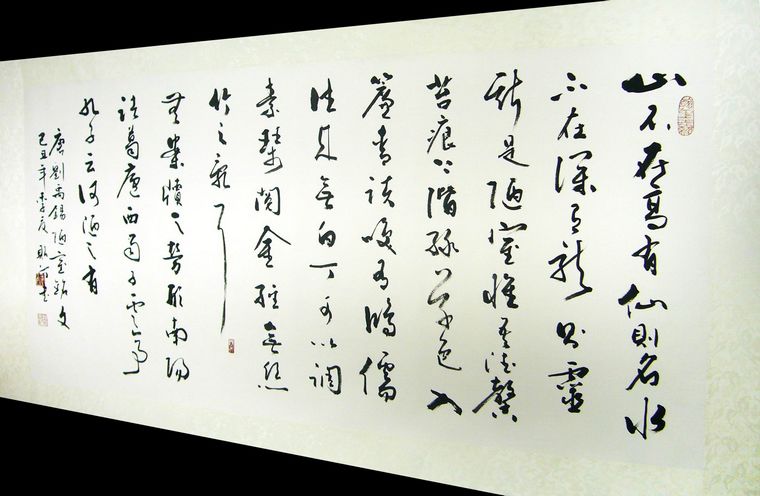 山不在高有仙則名水
不在深有龍則靈
斯是陋室惟吾德馨
苔痕上階綠草色入
簾青談笑有鴻儒
往來無白丁可以調
素琴閱金經無絲
竹之亂耳
無案牘之勞形南陽
諸葛廬西蜀子雲亭
孔子云何陋之有
唐劉禹錫陋室銘文
己丑年季夏